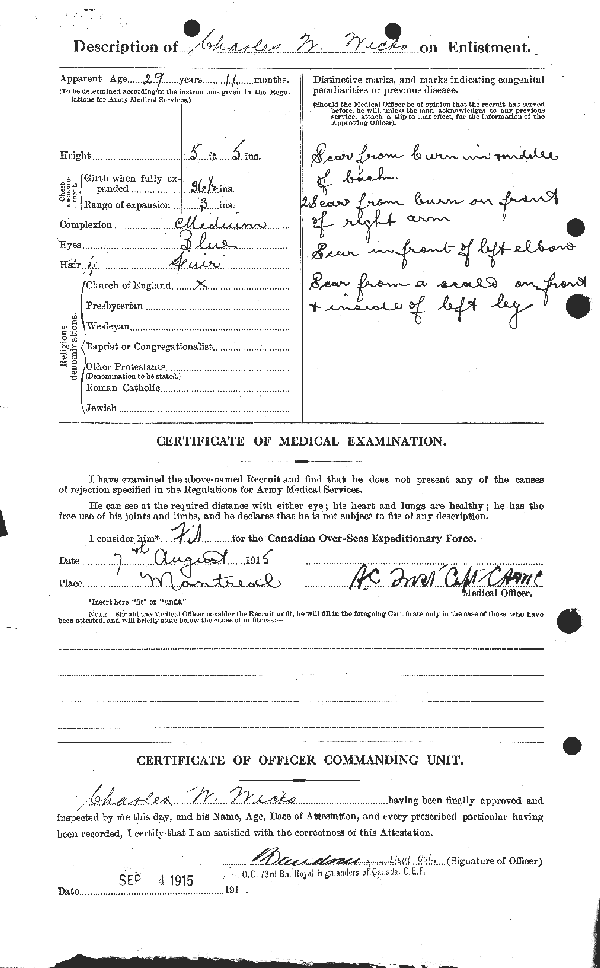 Description of Charles W. Wicks on Enlistment.
Apparent Age 29 years 11 months.
(To be determined according to the instructions given in the Regulations for Army Medical Services.)
Distinctive marks, and marks indicating congenital
peculiarities or previous disease.
(Should the Medical Officer be of opinion that the recruit has served
before, he will, unless the man acknowledges to any previous
service, attach a slip to that effect, for the information of the
Approving Officer).
Height 5 ft. 5 ins.
Chest measurement
Girth when fully expanded ins.
Range of expansion 3 ins.
Complexion Medium
Eyes Blue
Hair Fair
Scar from burn in middle
of back
2 Scar from burn on front
of right arm
Scar in front of left elbow
Scar from a scald on front
+ inside of left leg
Religious denominations.
Church of England x
Presbyterian
Wesleyan
Baptist or Congregationalist
Other Protestants
(Denomination to be stated.)
Roman Catholic
Jewish
CERTIFICATE OF MEDICAL EXAMINATION.
I have examined the above-named Recruit and find that he does not present any of the causes
of rejection specified in the Regulations for Army Medical Services.
He can see at the required distance with either eye; his heart and lungs are healthy; he has the
free use of his joints and limbs, and he declares that he is not subject to fits of any description.
I consider him* Fit for the Canadian Over-Seas Expeditionary Force.
Date 7th August 1915
Place Montreal
Capt CAMC
Medical Officer.
*Insert here "fit" or "unfit."
NOTE.—Should the Medical Officer consider the Recruit unfit, he will fill in the foregoing Certificate only in the case of those who have
been attested, and will briefly state below the cause of unfitness:—
CERTIFICATE OF OFFICER COMMANDING UNIT.
Charles W Wicks having been finally approved and
inspected by me this day, and his Name, Age, Date of Attestation, and every prescribed particular having
been recorded, I certify that I am satisfied with the correctness of this Attestation.
(Signature of Officer)
O.C. 73rd Bn. Royal Highlanders of Canada, C.E.F.
SEP 4 1915
Date 191